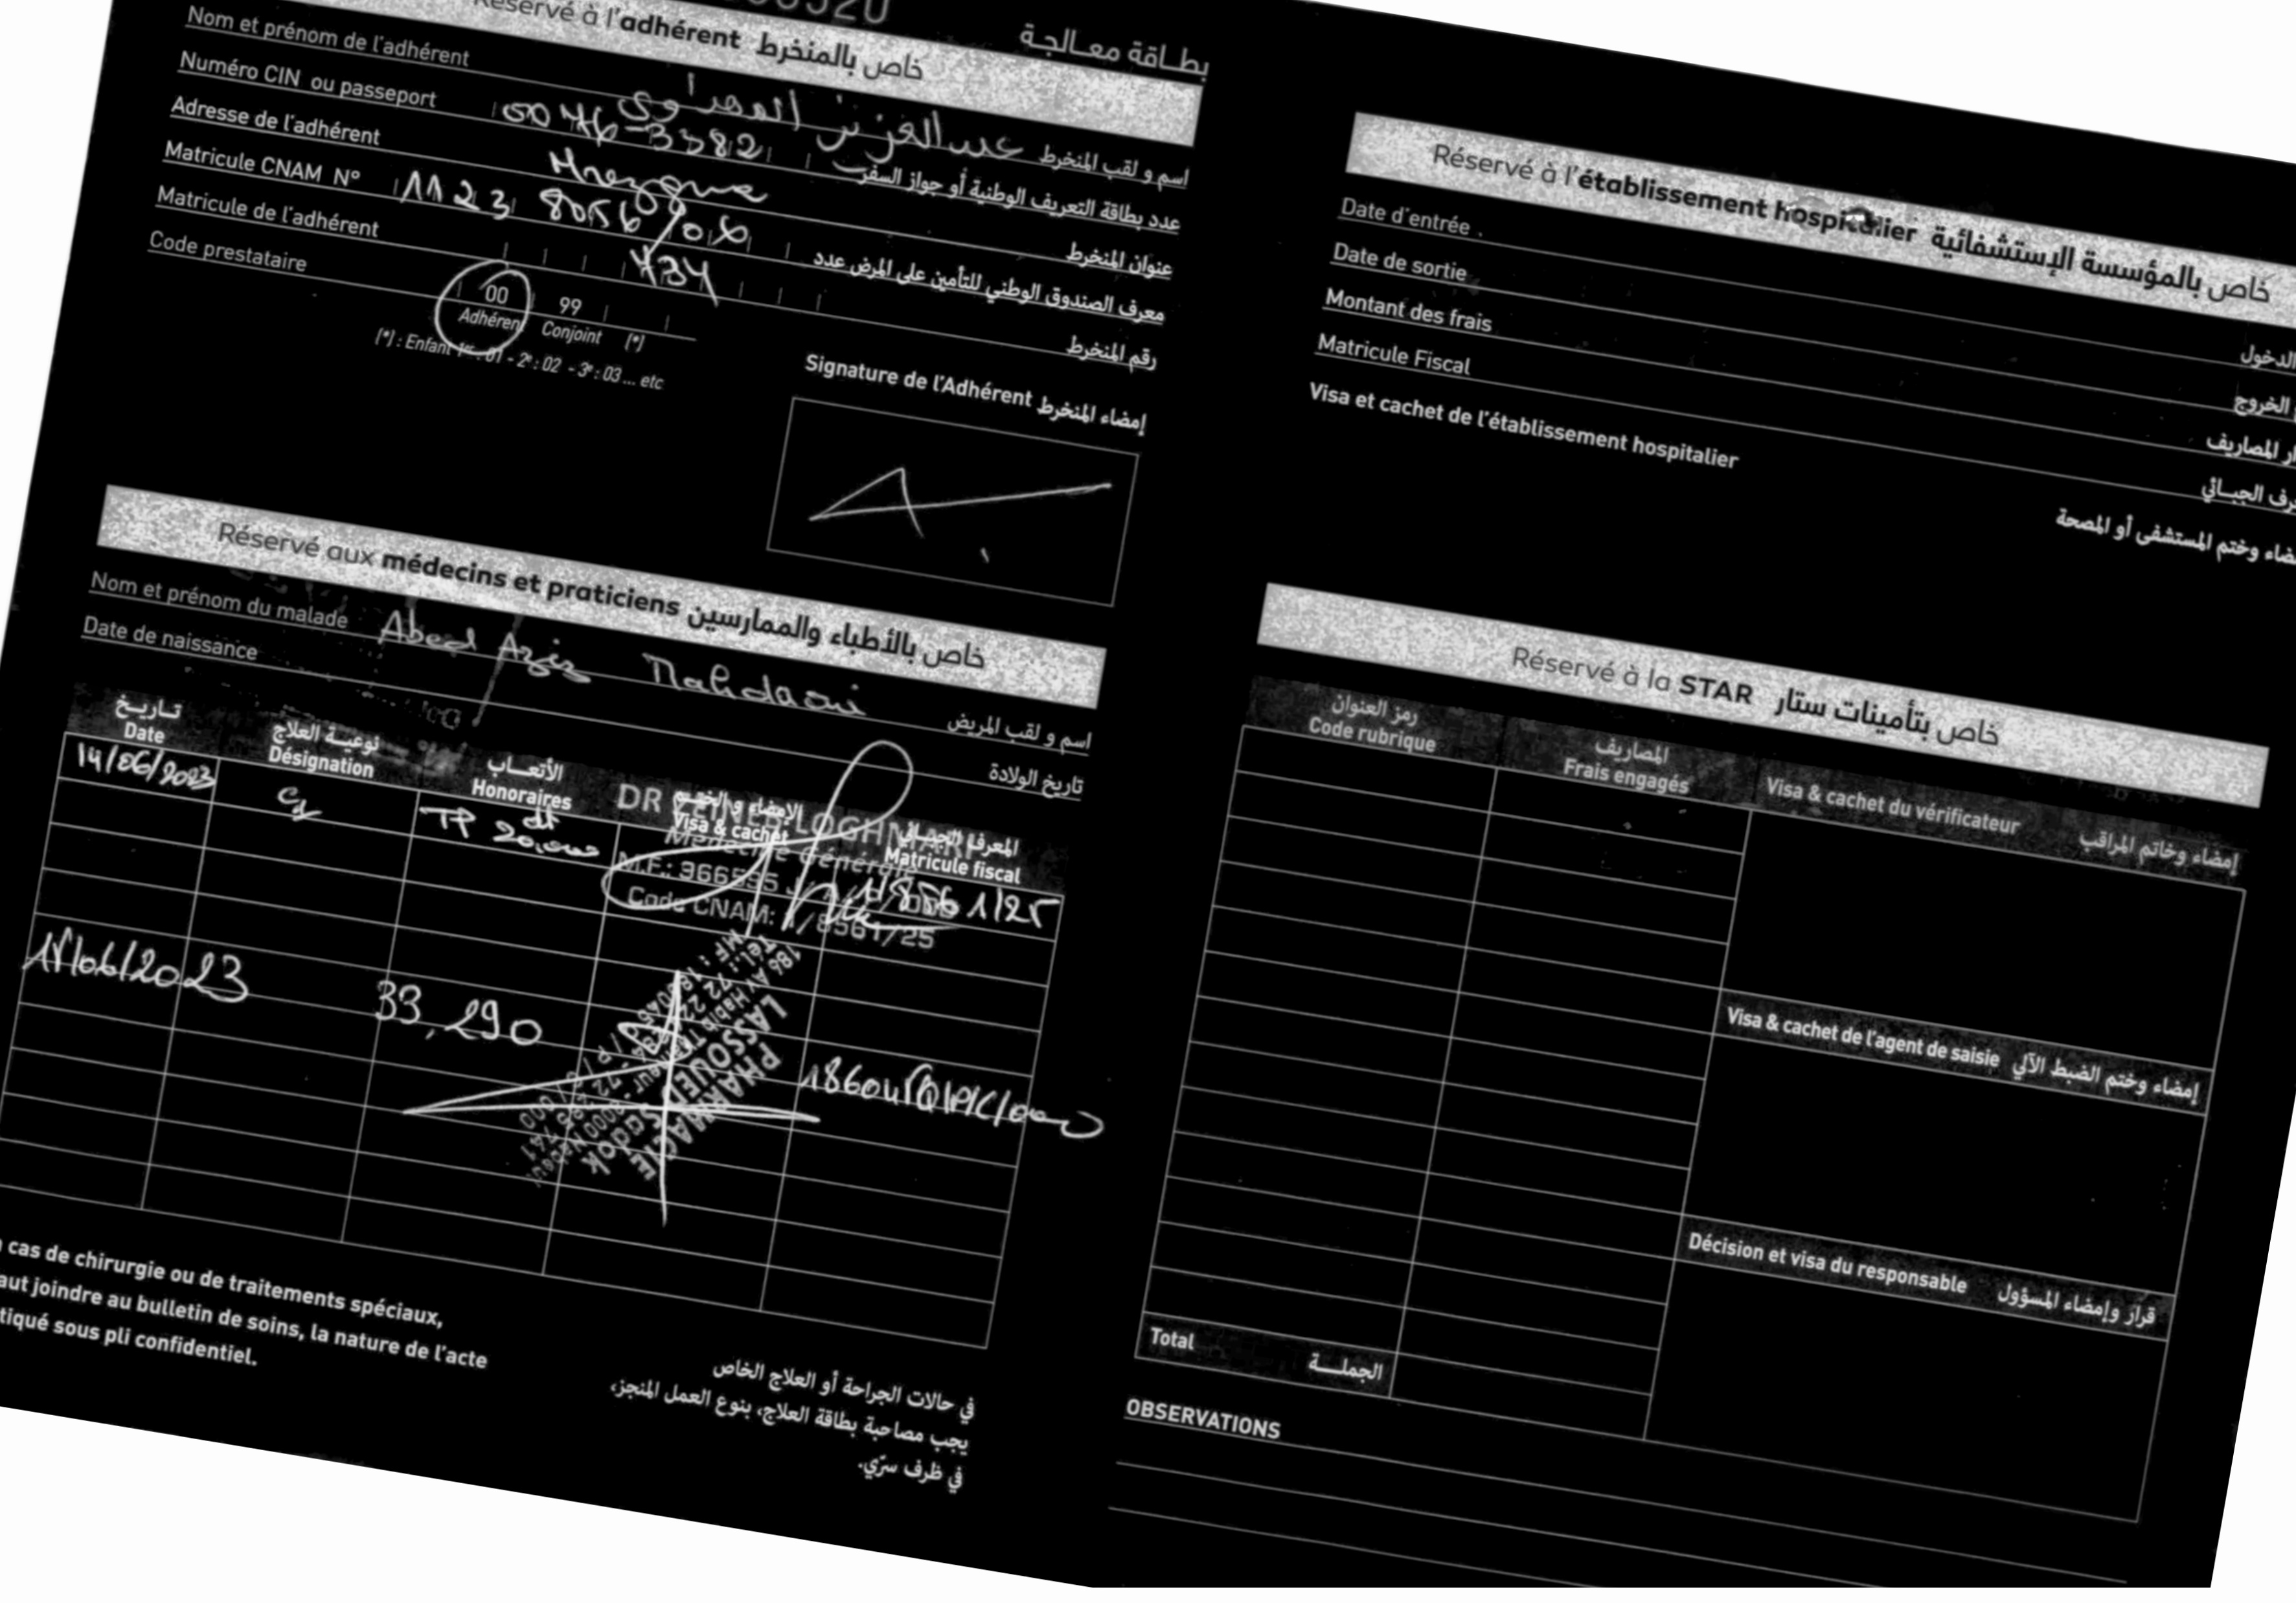 بطاقة معالجة
Réservé à l'adhérent خاص بالمنخرط
Nom et prénom de l'adhérent عبد العزيز المهداوي اسم و لقب المنخرط
Numéro CIN ou passeport عدد بطاقة التعريف الوطنية أو جواز السفر
Adresse de l'adhérent Mrezgua عنوان المنخرط
Matricule CNAM N° 11 23 8056/06 معرف الصندوق الوطني للتأمين على المرض عدد
Matricule de l'adhérent 734 رقم المنخرط
Code prestataire 00 99
Adhérent Conjoint (*)
(*) : Enfant 1er : 01 - 2e : 02 - 3e : 03 ... etc
Signature de l'Adhérent إمضاء المنخرط
Réservé aux médecins et praticiens خاص بالأطباء والممارسين
Nom et prénom du malade Abed Aziz Mahdaoui اسم و لقب المريض
Date de naissance تاريخ الولادة
تاريخ نوعية العلاج الأتعاب الإمضاء و الختم المعرف الجبائي
Date Désignation Honoraires Visa & cachet Matricule fiscal
14/06/2023 TP 20,000 1/8561/25
Médecine Générale
Code CNAM: 1/8561/25
15/06/2023 33,290
PHARMACIE
En cas de chirurgie ou de traitements spéciaux,
faut joindre au bulletin de soins, la nature de l'acte
pratiqué sous pli confidentiel.
في حالات الجراحة أو العلاج الخاص
يجب مصاحبة بطاقة العلاج، بنوع العمل المنجز،
في ظرف سرّي.
Réservé à l'établissement hospitalier خاص بالمؤسسة الإستشفائية
Date d'entrée الدخول
Date de sortie الخروج
Montant des frais المصاريف
Matricule Fiscal الجبائي
Visa et cachet de l'établissement hospitalier وختم المستشفى أو المصحة
Réservé à la STAR خاص بتأمينات ستار
رمز العنوان المصاريف
Code rubrique Frais engagés Visa & cachet du vérificateur إمضاء وخاتم المراقب
Visa & cachet de l'agent de saisie إمضاء وختم الضبط الآلي
Décision et visa du responsable قرار وإمضاء المسؤول
Total الجملة
OBSERVATIONS